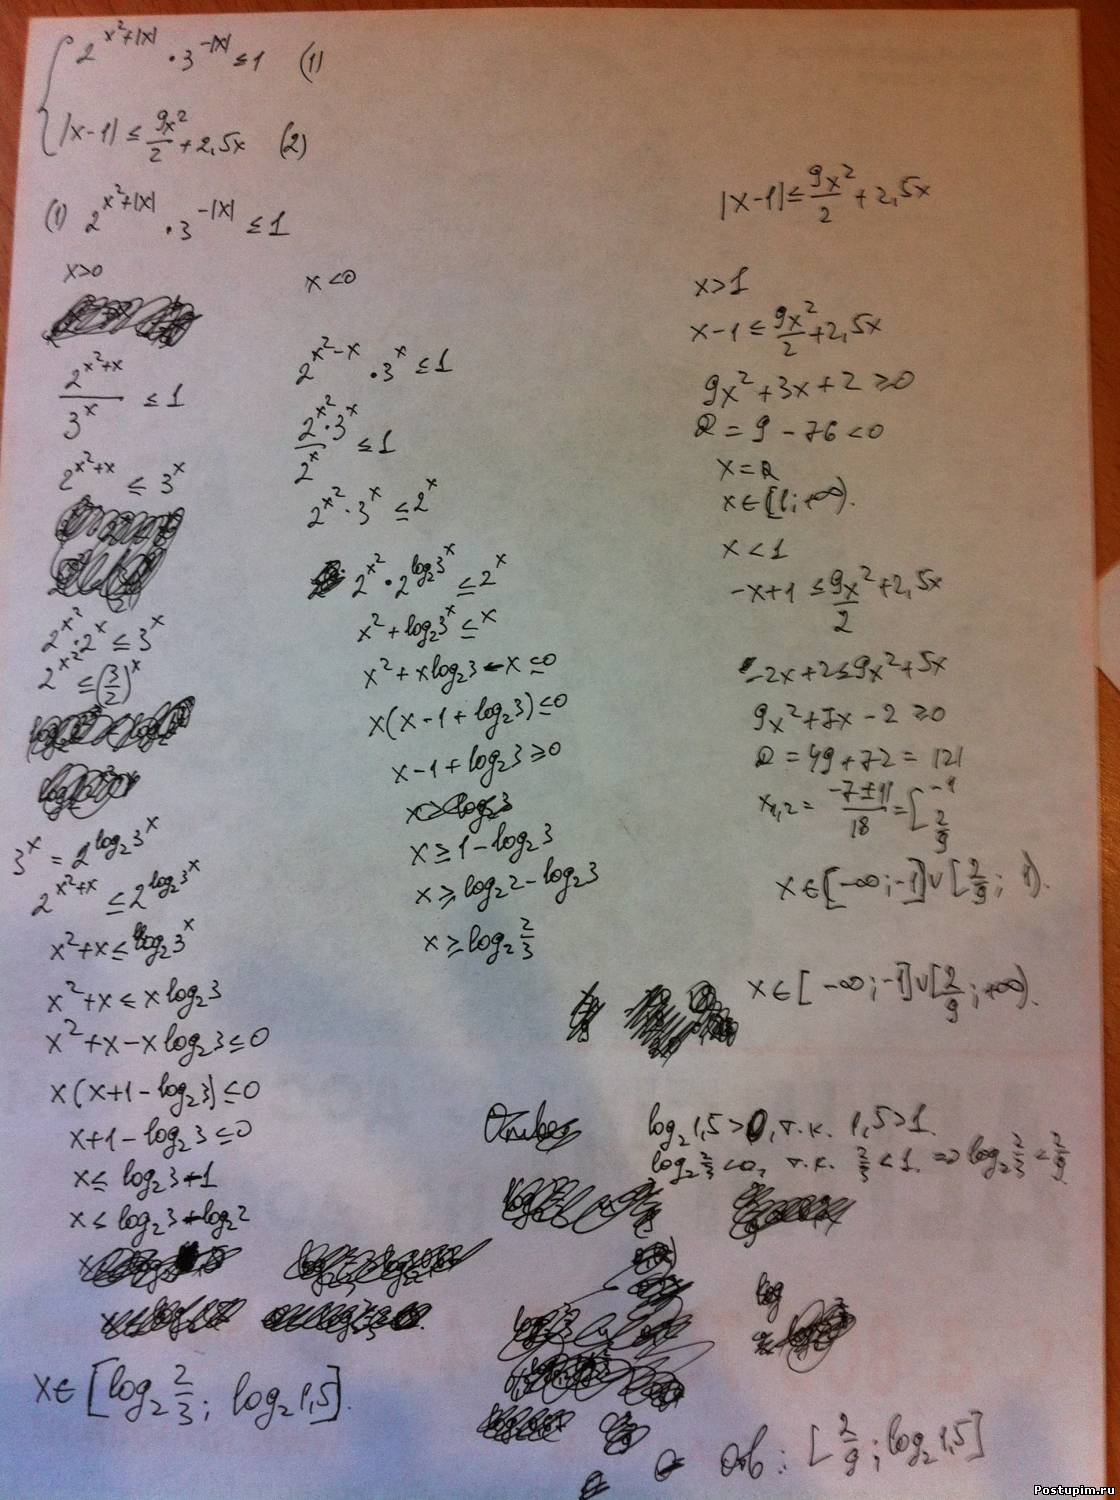 { 2^(x²+|x|) · 3^(-|x|) ≤ 1 (1)
|x-1| ≤ 9x²/2 + 2,5x (2)
(1) 2^(x²+|x|) · 3^(-|x|) ≤ 1
x>0
2^(x²+x)/3^x ≤ 1
2^(x²+x) ≤ 3^x
2^(x²)·2^x ≤ 3^x
2^(x²) ≤ (3/2)^x
3^x = 2^(log₂3^x)
2^(x²+x) ≤ 2^(log₂3^x)
x²+x ≤ log₂3^x
x²+x ≤ x log₂3
x²+x-x log₂3 ≤ 0
x(x+1-log₂3) ≤ 0
x+1-log₂3 ≤ 0
x ≤ log₂3-1
x ≤ log₂3-log₂2
x∈[log₂ 2/3; log₂1,5].
x<0
2^(x²-x) · 3^x ≤ 1
2^(x²)·3^x/2^x ≤ 1
2^(x²)·3^x ≤ 2^x
2^(x²)·2^(log₂3^x) ≤ 2^x
x²+log₂3^x ≤ x
x²+x log₂3-x ≤ 0
x(x-1+log₂3) ≤ 0
x-1+log₂3 ≥ 0
x ≥ 1-log₂3
x ≥ log₂2-log₂3
x ≥ log₂ 2/3
|x-1| ≤ 9x²/2 + 2,5x
x>1
x-1 ≤ 9x²/2 + 2,5x
9x²+3x+2 ≥ 0
D = 9 - 76 < 0
x = R
x∈[1;+∞).
x<1
-x+1 ≤ 9x²/2 + 2,5x
-2x+2 ≤ 9x²+5x
9x²+7x-2 ≥ 0
D = 49+72 = 121
x₁,₂ = (-7±11)/18 = [ -1
2/9
x∈[-∞;-1]∪[2/9; 1).
x∈[-∞;-1]∪[2/9;+∞).
Ответ
log₂1,5>0, т.к. 1,5>1.
log₂ 2/3<0, т.к. 2/3<1. => log₂ 2/3 < 2/9
log
Отв: [2/9; log₂1,5]
Postupim.ru